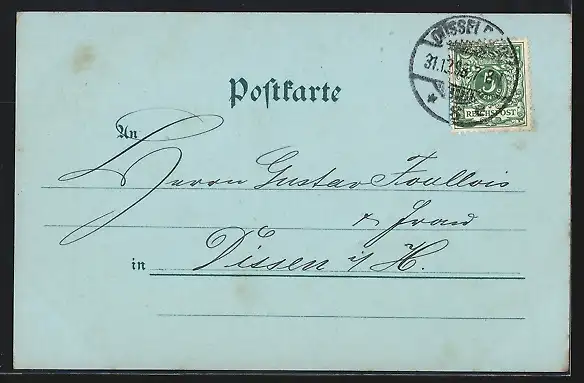 DÜSSELD
31.12.98
5
REICHSPOST
Postkarte
An
Herrn Gustav
& Frau
in Dissen i/H.